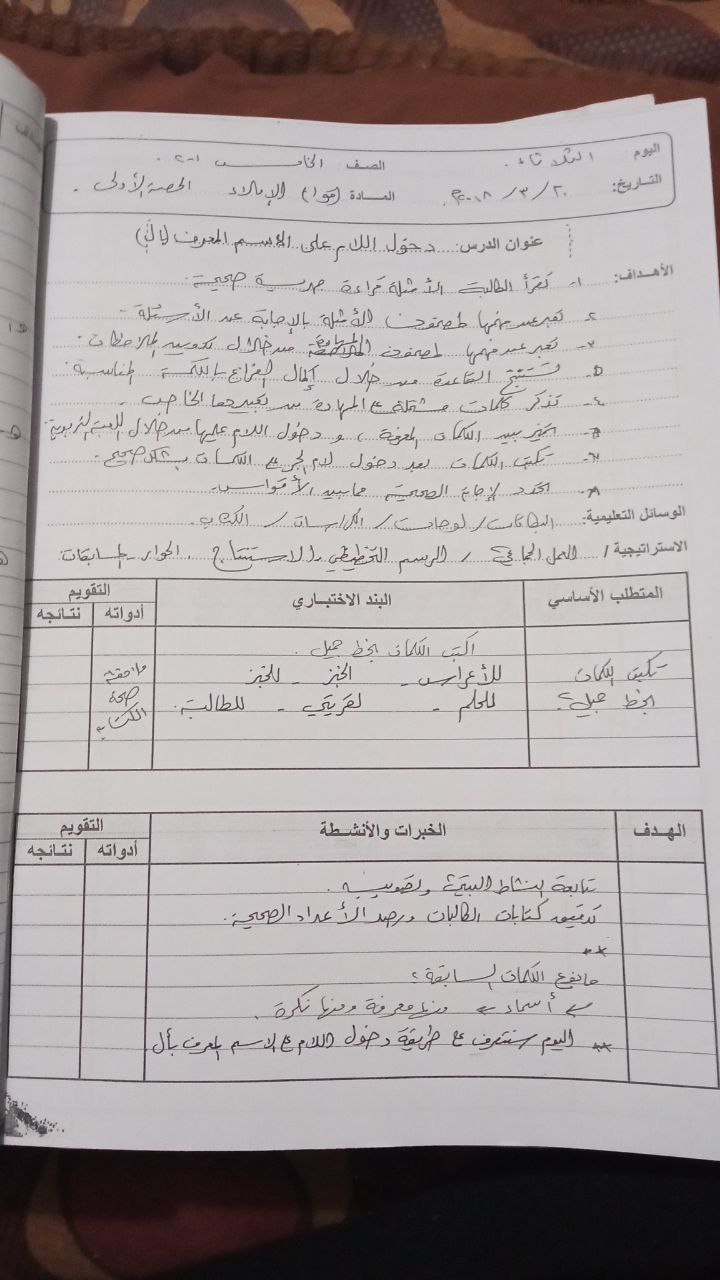 اليوم: الثلاثاء. الصف الخامس
التاريخ: ٢٠ / ٣ / ٢٠١٨م. المادة (مهارة) الإملاء الحصة الأولى.
عنوان الدرس: دخول اللام على الاسم المعرف (بال)
الأهداف: ١- تقرأ الطالبة الأمثلة قراءة جهرية صحيحة.
٢- تعبر عن فهمها لمضمون الأمثلة بالإجابة عن الأسئلة.
٣- تعبر عن فهمها لمضمون المهارة من خلال تدوين الملاحظات.
٥- تستنتج القاعدة من خلال إكمال الفراغ بالكلمة المناسبة.
٤- تذكر كلمات مشتملة ع المهارة من تعبيرها الخاص.
تميز بين الكلمات المعرفة، و دخول اللام عليها من خلال اللعبة التربوية
٧- تكتب الكلمات بعد دخول لام الجر ع الكلمات بشكل صحيح.
٨- تحدد الإجابة الصحيحة مما بين الأقواس.
الوسائل التعليمية: البطاقات / لوحات / الكراسات / الكتاب.
الاستراتيجية / العمل الجماعي / الرسم التخطيطي - الاستنتاج. الحوار - المسابقات.
المتطلب الأساسي البند الاختباري التقويم
أدواته نتائجه
اكتب الكلمات بخط جميل.
تكتب الكلمات للأعراس - الخبز - للخبز ملاحظة
بخط جميل للحلم - لقريتي - للطالبة. صحة
الكتابة
الهدف الخبرات والأنشطة التقويم
أدواته نتائجه
متابعة النشاط البيتي وتصويبه.
تدقيق كتابات الطالبات ورصد الأعداد الصحيحة.
**
ما نوع الكلمات السابقة؟
أسماء منها معرفة ومنها نكرة.
** اليوم سنتعرف ع طريقة دخول اللام ع الاسم المعرف بأل